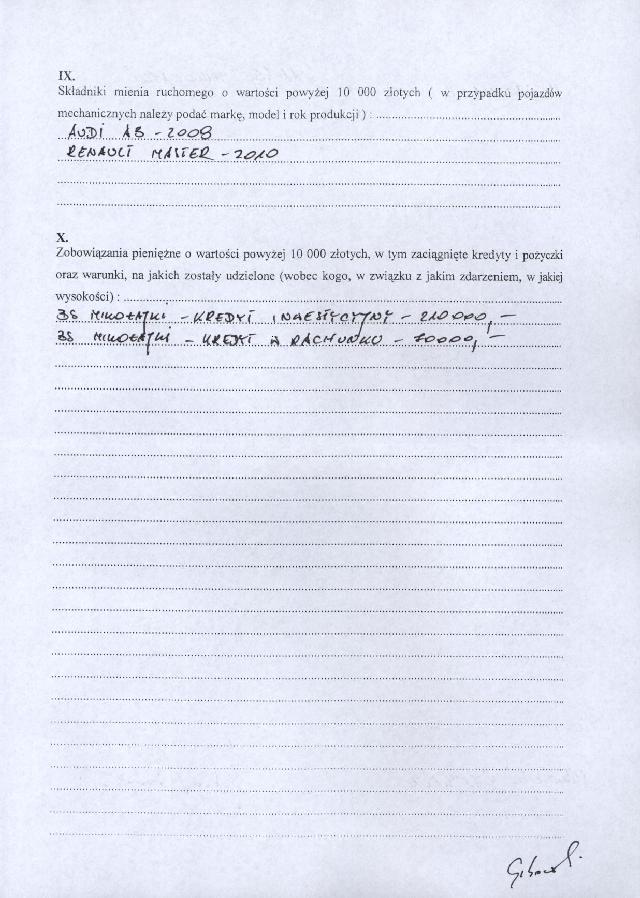 IX.
Składniki mienia ruchomego o wartości powyżej 10 000 złotych ( w przypadku pojazdów
mechanicznych należy podać markę, model i rok produkcji ) :
AUDI A3 - 2008
RENAULT MASTER - 2010
X.
Zobowiązania pieniężne o wartości powyżej 10 000 złotych, w tym zaciągnięte kredyty i pożyczki
oraz warunki, na jakich zostały udzielone (wobec kogo, w związku z jakim zdarzeniem, w jakiej
wysokości) :
BS MIKOŁAJKI - KREDYT INWESTYCYJNY - 210000,-
BS MIKOŁAJKI - KREDYT W RACHUNKU - 70000,-